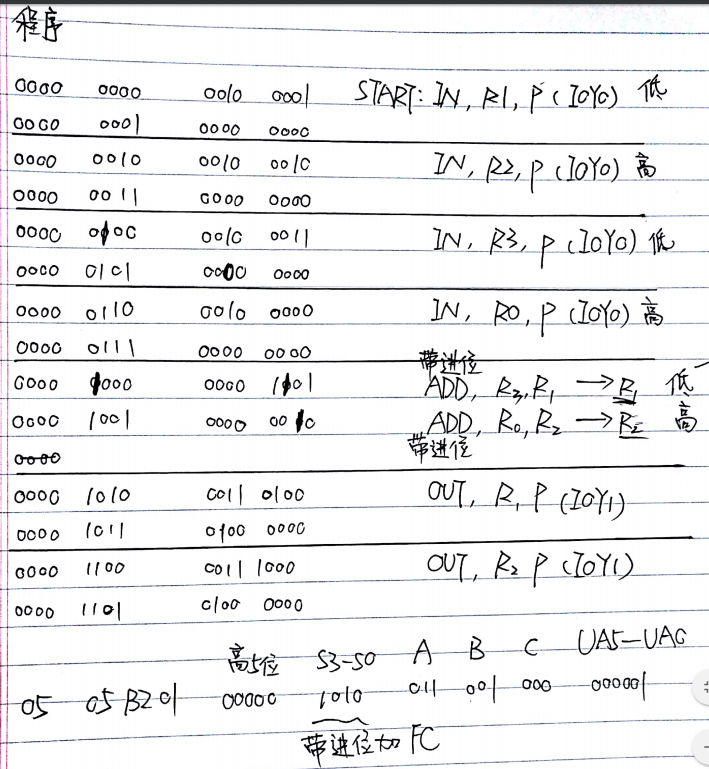 程序
0000 0000 0010 0001 START: IN, R1, P (IOY0) 低
0000 0001 0000 0000
0000 0010 0010 0010 IN, R2, P (IOY0) 高
0000 0011 0000 0000
0000 0100 0010 0011 IN, R3, P (IOY0) 低
0000 0101 0000 0000
0000 0110 0010 0000 IN, R0, P (IOY0) 高
0000 0111 0000 0000
带进位
0000 1000 0000 1101 ADD, R3, R1 → R1 低
0000 1001 0000 0010 ADD, R0, R2 → R2 高
带进位
0000
0000 1010 0011 0100 OUT, R1 P (IOY1)
0000 1011 0100 0000
0000 1100 0011 1000 OUT, R2 P (IOY1)
0000 1101 0100 0000
高5位 S3-S0 A B C UA5-UA0
05 05B201 00000 1010 011 001 000 000001
带进位加 FC